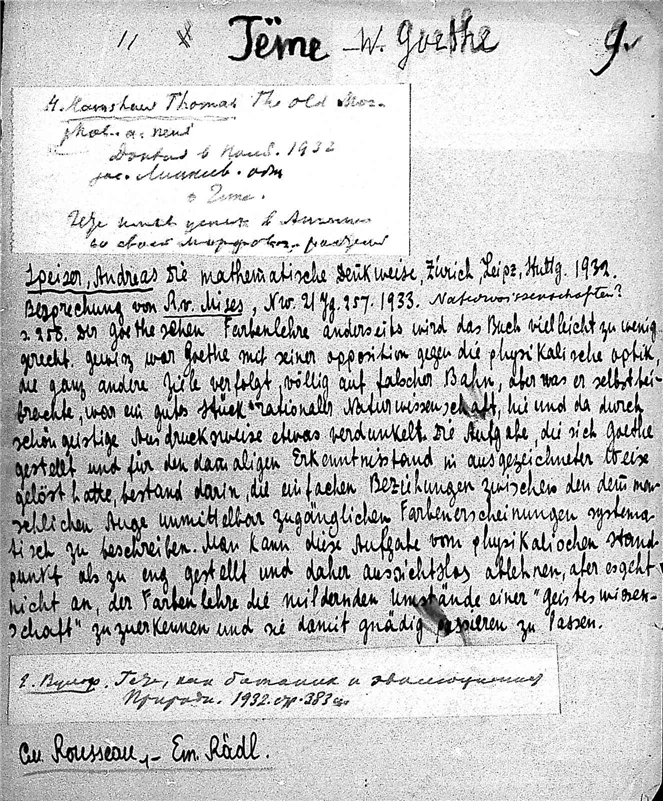 11 Гёте – W. Goethe 9.
H. Hamshaw Thomas The old Mor-
phol. a. new
Доклад в 1932
Гёте.
Гёте в Англии
со своей
Speizer, Andreas Die mathematische Denkweise, Zürich, Leipz, Stuttg. 1932.
Besprechung von R. v. Mises, Nw. 21 Jg. 257. 1933. Naturwissenschaften?
s 258. Der Goetheschen Farbenlehre anderseits wird das Buch vielleicht zu wenig
gerecht. Gewiz war Goethe mit seiner opposition gegen die physikalische optik,
die ganz andere Ziele verfolgt, völlig auf falscher Bahn, aber was er selbst bei-
brachte, war ein gutes Stück rationaller Naturwissenschaft, hie und da durch
schöngeistige Ausdrucksweise etwas verdunkelt. Die Aufgabe, die sich Goethe
gestellt und für den damaligen Erkenntnisstand in ausgezeichneter Weise
gelöst hatte, bestand darin, die einfachen Beziehungen zwischen den dem men-
schlichen Auge unmittelbar zugänglichen Farbenerscheinungen systema-
tisch zu beschreiben. Man kann diese Aufgabe vom physikalischen Stand-
punkt als zu eng gestellt und daher aussichtslos ablehnen, aber es geht
nicht an, der Farbenlehre die mildernden Umstände einer "geisteswissen-
schaft" zuzuerkennen und sie damit gnädig passieren zu lassen.
Гёте, как ботаник и эволюционист
Природа. 1932. стр. 383
См Rousseau, – Em. Rädl.